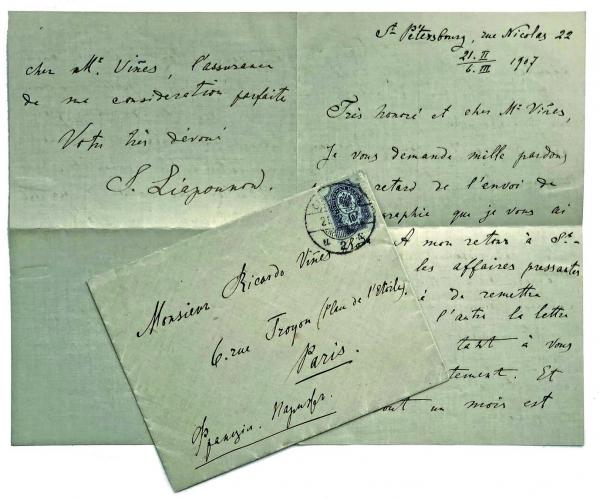 St Pétersbourg, rue Nicolas 22
21. II
6. III 1907
Très honoré et cher Mr Viñes,
Je vous demande mille pardons
retard de l'envoi de
graphie que je vous ai
A mon retour à St-
les affaires pressantes
à de remettre
l'autre la lettre
tant à vous
tement. Et
un mois est
cher Mr Viñes, l'assurance
de ma considération parfaite
Votre très dévoué
S. Liapounow.
Monsieur Ricardo Viñes
6. rue Troyon (Place de l'Etoile).
Paris.
Франція. Парижъ.